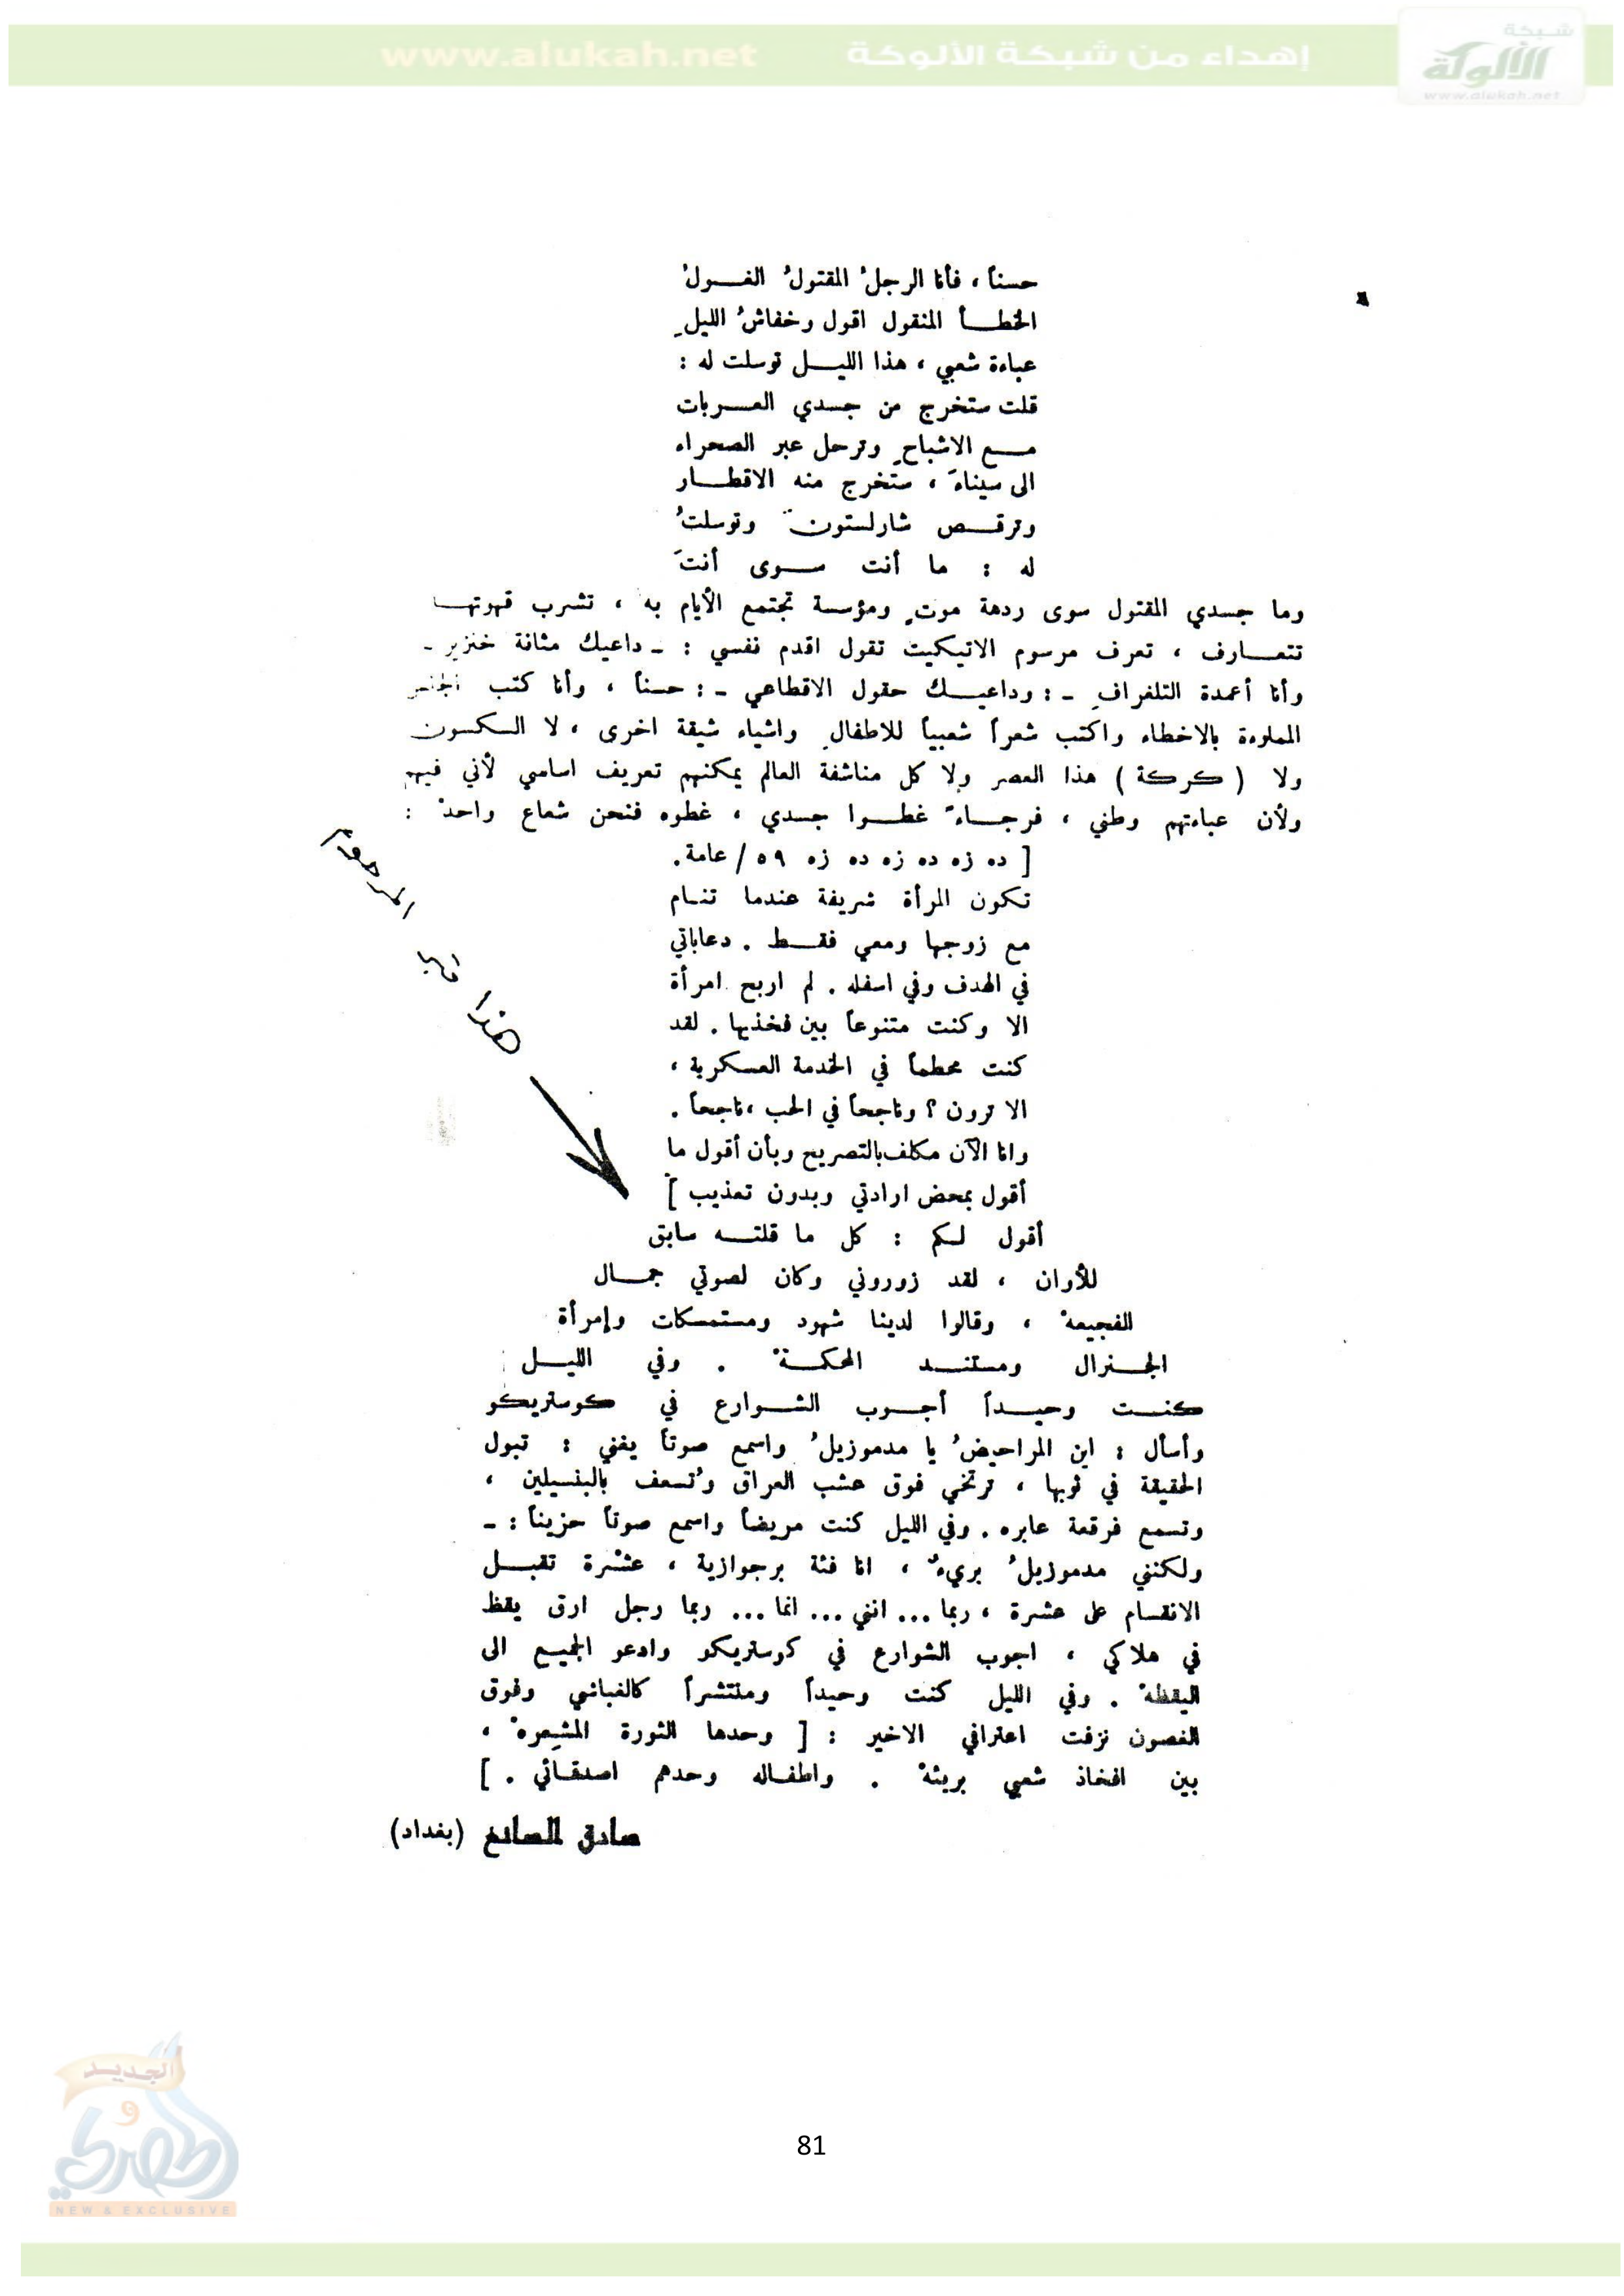 إهداء من شبكة الألوكة www.alukah.net
شبكة
الألوكة
www.alukah.net
حسناً ، فأنا الرجلُ المقتولُ الغـــولُ
الخطـــأ المنقول اقول وخفاشُ الليلِ
عباءة شعبي ، هذا الليـــل توسلت له :
قلت ستخرج من جسدي العـــربات
مـــع الاشباحِ وترحل عبر الصحراء
الى سيناءَ ، ستخرج منه الاقطـــار
وترقـــص شارلستون وتوسلتُ
له : ما أنت ســـوى أنتَ
وما جسدي المقتول سوى ردهة موتٍ ومؤسسة تجتمع الأيام به ، تشرب قهوتهـــا
تتعـــارف ، تعرف مرسوم الاتيكيت تقول اقدم نفسي : ـ داعيك مثانة خنزير ـ
وأنا أعمدة التلغرافِ ـ : وداعيـــك حقول الاقطاعي ـ : حسناً ، وأنا كتب الجنس
المملوءة بالاخطاء واكتب شعراً شعبياً للاطفالِ واشياء شيقة اخرى ، لا السكسون
ولا ( كركة ) هذا العصر ولا كل مناشفة العالم يمكنهم تعريف اسامي لأني فيهم
ولأن عباءتهم وطني ، فرجـــاءً غطـــوا جسدي ، غطوه فنحن شعاع واحدْ :
[ ده زه ده زه ده زه ٥٩ / عامة .
تكون المرأة شريفة عندما تنـام
مع زوجها ومعي فقـــط . دعاباتي
في الهدف وفي اسفله . لم اربح امرأة
الا وكنت متنوعاً بين فخذيها . لقد
كنت محطماً في الخدمة العسكرية ،
الا ترون ؟ وناجحاً في الحب ، ناجحاً .
وانا الآن مكلف بالتصريح وبأن أقول ما
أقول بمحض ارادتي وبدون تعذيب ]
هذا قبر المرحوم
أقول لـــكم : كل ما قلتـــه سابق
للأوان ، لقد زوروني وكان لصوتي جمـــال
الفجيعهْ ، وقالوا لدينا شهود ومستمسكات وإمرأة
الجـــنرال ومستنـــد المحكمـــةْ . وفي الليـــل
كنـــت وحيـــداً أجـــوب الشـــوارع في كوستريكو
وأسأل : اين المراحيضُ يا مدموزيلُ واسمع صوتاً يغني : تبول
الحقيقة في ثوبها ، ترتخي فوق عشب العراق وتُسعف بالبنسيلين ،
وتسمع فرقعة عابره . وفي الليل كنت مريضاً واسمع صوتاً حزيناً : ـ
ولكنني مدموزيلُ بريءٌ ، انا فئة برجوازية ، عشْرة تقبـــل
الانقسام على عشرة ، ربما ... انني ... انما ... ربما رجل ارق يقظ
في هلاكي ، اجوب الشوارع في كوستريكو وادعو الجميع الى
اليقظهْ . وفي الليل كنت وحيداً ومنتشراً كالفباشي وفوق
الغصون نزفت اعترافي الاخير : [ وحدها الثورة المشعرهْ ،
بين افخاذ شعبي بريئهْ . واطفـاله وحدهم اصدقـائي . ]
صادق الصائغ (بغداد)
الجديد
و
الحصري
NEW & EXCLUSIVE
81